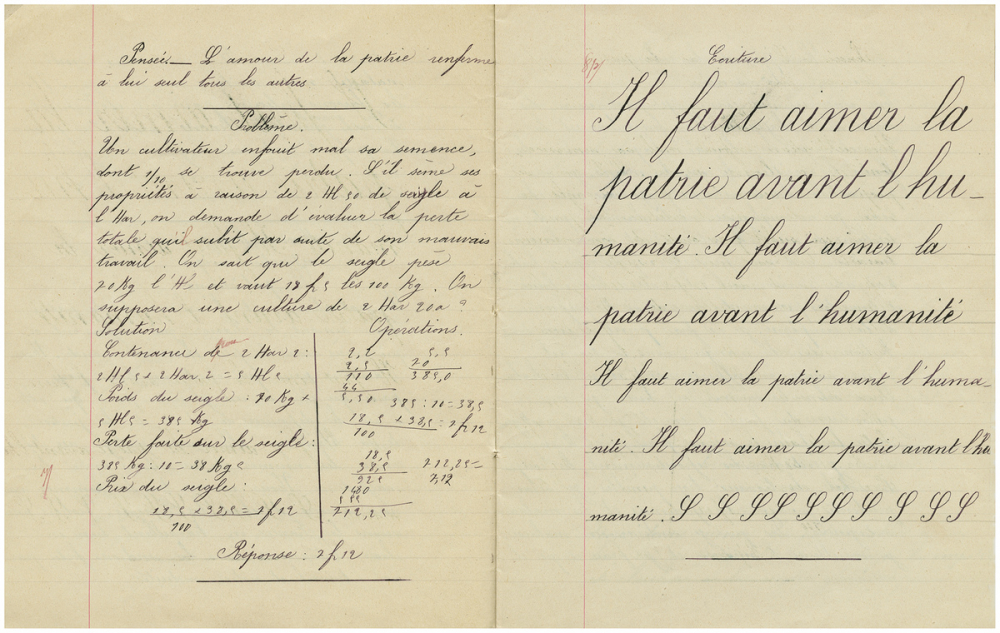 Pensée _ L'amour de la patrie renferme
à lui seul tous les autres
Problème.
Un cultivateur enfouit mal sa semence,
dont 1/10 se trouve perdu. S'il sème ses
propriétés à raison de 2 Hl 50 de seigle à
l'Har, on demande d'évaluer la perte
totale qu'il subit par suite de son mauvais
travail. On sait que le seigle pèse
70 Kg l'Hl et vaut 18 f 5 les 100 Kg. On
supposera une culture de 2 Har 20a ?
Solution
Contenance de 2 Har 2 :
2 Hl 5 x 2 Har 2 = 5 Hl 5
Poids du seigle : 70 Kg x
5 Hl 5 = 385 Kg
Perte faite sur le seigle :
385 Kg : 10 = 38 Kg 5
Prix du seigle :
18,5 x 38,5 = 7 f 12
100
Opérations.
2,2
2,5
110
44
5,50
5,5
70
385,0
385 : 10 = 38,5
18,5 x 38,5 : 7 f 12
100
18,5
38,5
925
1480
555
712,25
712,25 =
7,12
Réponse : 7 f 12
Ecriture
Il faut aimer la
patrie avant l'hu_
manité. Il faut aimer la
patrie avant l'humanité
Il faut aimer la patrie avant l'huma_
nité. Il faut aimer la patrie avant l'hu
manité. S S S S S S S S S S